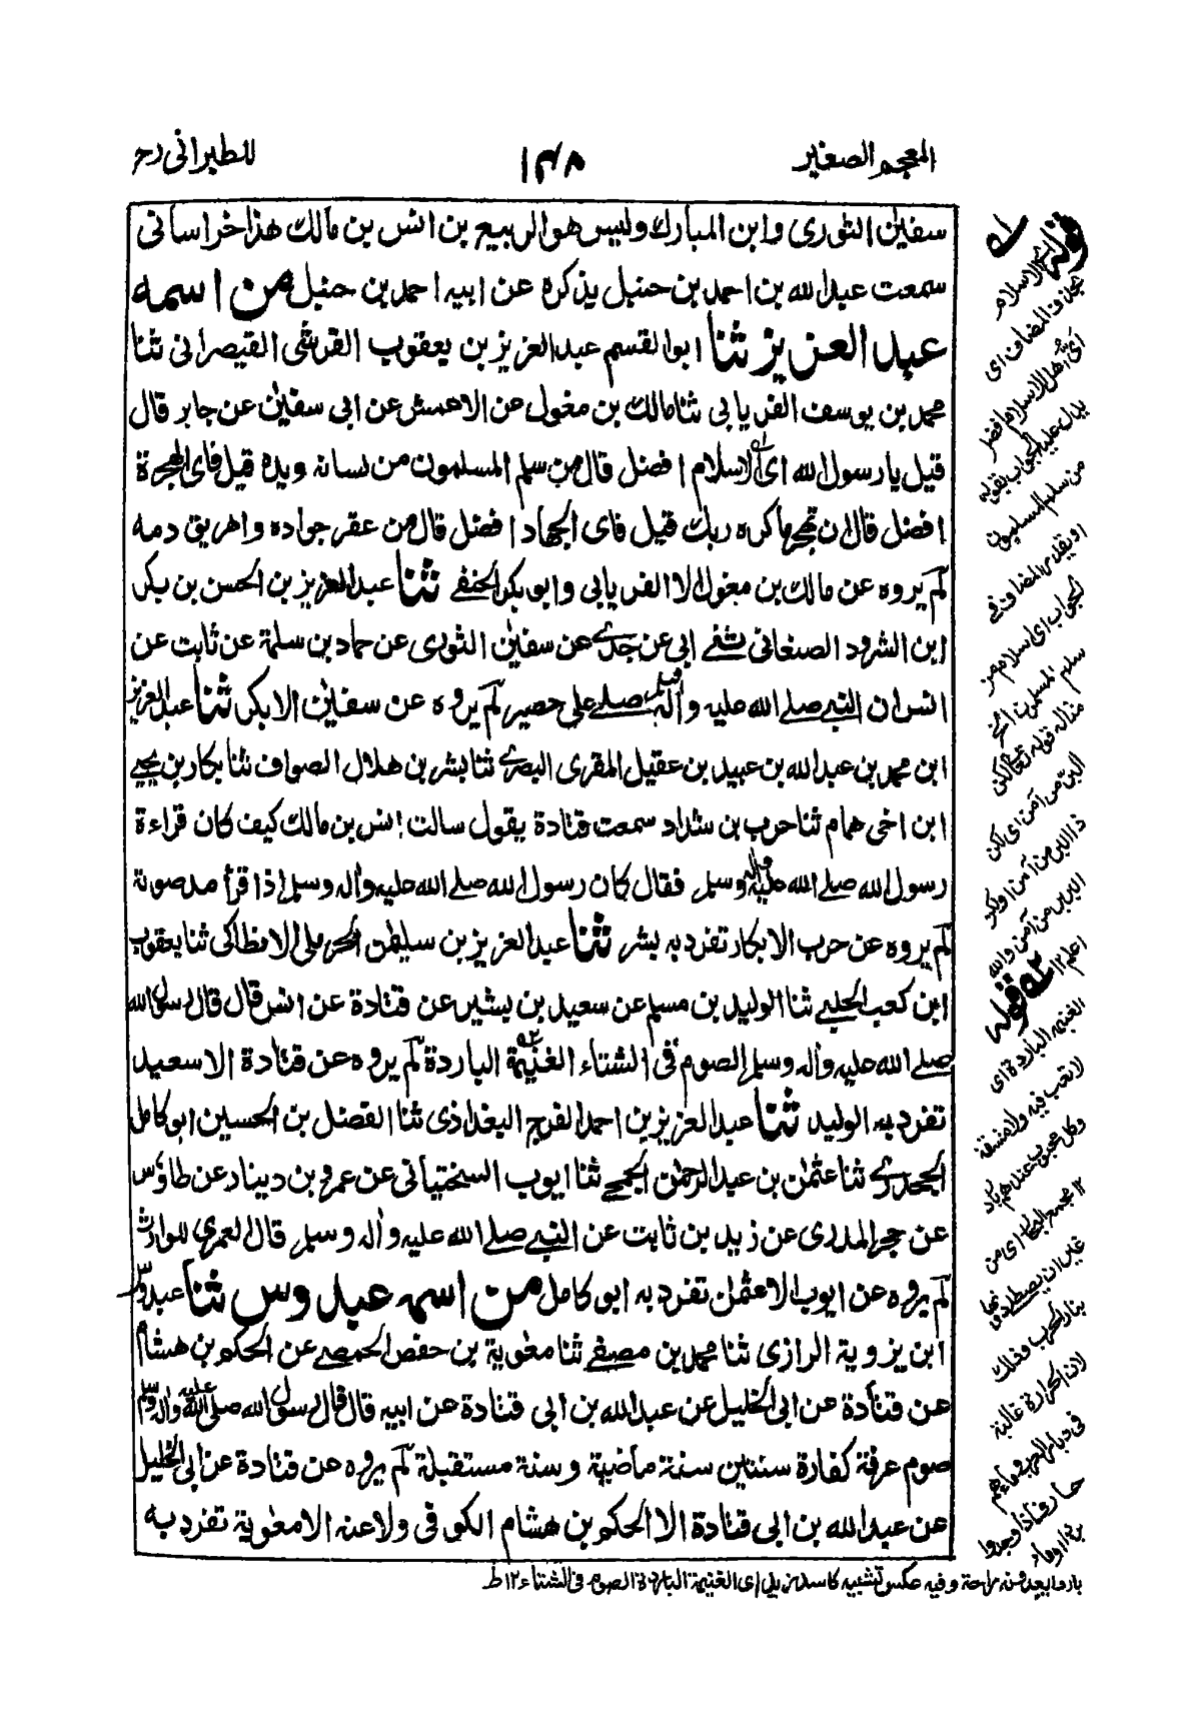 المعجم الصغير
١٤٨
للطبرانی رح
سفيٰن الثوری وابن المبارك وليس هو الربيع بن انس بن مالك هذا خراسانی
سمعت عبدالله بن احمد بن حنبل يذكره عن ابيه احمد بن حنبل من اسمه
عبد العزيز ثنا ابو القسم عبدالعزيز بن يعقوب القرشی القيصرانی ثنا
محمد بن يوسف الفريابی ثنا مالك بن مغول عن الاعمش عن ابی سفيٰن عن جابر قال
قيل يا رسول الله ای الاسلام افضل قال من سلم المسلمون من لسانه ويده قيل فای الهجرة
افضل قال ان تهجر ما كره ربك قيل فای الجهاد افضل قال من عقر جواده واهريق دمه
لم يروه عن مالك بن مغول الا الفريابی وابو بكر الحنفے ثنا عبدالعزيز بن الحسن بن بكر
ابن الشرود الصنعانی ثنے ابی عن جدے عن سفيٰن الثوری عن حماد بن سلمة عن ثابت عن
انس ان النبے صلے الله عليه واٰله وسلم صلے علی حصير لم يروه عن سفيٰن الا بكر ثنا عبدالعزيز
ابن محمد بن عبدالله بن عبيد بن عقيل المقری البصرے ثنا بشر بن هلال الصواف ثنا بكار بن يحيے
ابن اخی همام ثنا حرب بن شداد سمعت قتادة يقول سالت انس بن مالك كيف كان قراءة
رسول الله صلے الله عليه واٰله وسلم فقال كان رسول الله صلے الله عليه واٰله وسلم اذا قرأ مد صوته
لم يروه عن حرب الا بكار تفرد به بشر ثنا عبدالعزيز بن سليمٰن الحرملی الانطاكی ثنا يعقوب
ابن كعب الحلبے ثنا الوليد بن مسلم عن سعيد بن بشير عن قتادة عن انس قال قال رسول الله
صلے الله عليه واٰله وسلم الصوم فی الشتاء الغنيمة الباردة لم يروه عن قتادة الا سعيد
تفرد به الوليد ثنا عبدالعزيز بن احمد الفرج البغداذی ثنا الفضل بن الحسين ابو كامل
الجحدرے ثنا عثمٰن بن عبدالرحمٰن الجمحے ثنا ايوب السختيانی عن عمرو بن دينار عن طاؤس
عن حجر المدری عن زيد بن ثابت عن النبے صلے الله عليه واٰله وسلم قال العمری للوارث
لم يروه عن ايوب الا عثمٰن تفرد به ابو كامل من اسمه عبدوس ثنا عبدوس
ابن يزوية الرازی ثنا محمد بن مصفے ثنا معٰوية بن حفص الحمصے عن الحكم بن هشام
عن قتادة عن ابی الخليل عن عبدالله بن ابی قتادة عن ابيه قال قال رسول الله صلی الله عليه واٰله وسلم
صوم عرفة كفارة سنتين سنة ماضية وسنة مستقبلة لم يروه عن قتادة عن ابی الخليل
عن عبدالله بن ابی قتادة الا الحكم بن هشام الكوفی ولا عنه الا معٰوية تفرد به
قوله ١ه
ای الاسلام
بحذف المضاف ای
ای اهل الاسلام افضل
يدل عليه الجواب بقوله
من سلم المسلمون
او يقدر المضاف فی
الجواب ای اسلام من
سلم المسلمون الخ
مثاله قوله تعالی لكن
البر من آمن ای لكن
ذا البر من آمن او لكن
البر بر من آمن والله
اعلم ١٢ ٢ه قوله
الغنيمة الباردة ای
لا تعب فيه ولا مشقة
وكل محبوب عندهم بارد
١٢ مجمع البحار ای من
غير ان يصطلی فيها
بنار الحرب وذلك
لان الحرارة غالبة
فی ديار العرب وماءهم
حار فاذا وجدوا
بردا او ماء
باردا يعدونه راحة وفيه عكس تشبيه كاسد زيد ای الغنيمة الباردة الصوم فی الشتاء ١٢ ط